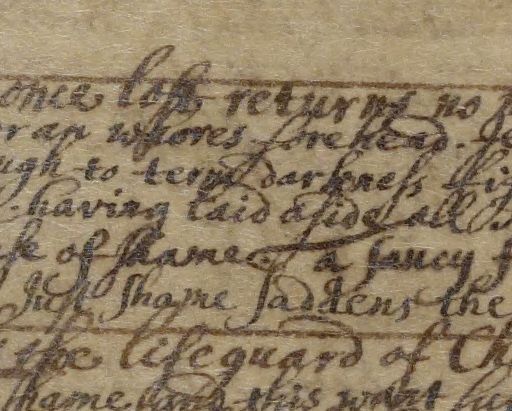 once lost returns no
an whores forehead.
ugh to term darkness
having laid aside all
of shame. a saucy
shame saddens the
the lifeguard of Ch
shame and this want